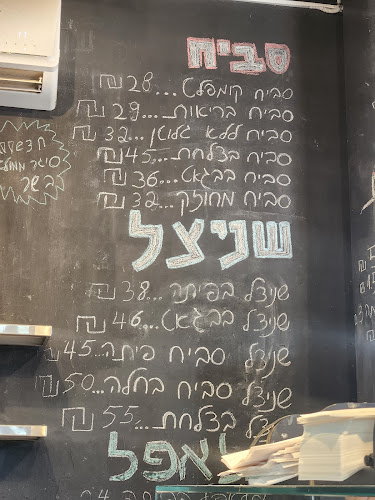 סביח
סביח קומפלט...28 ₪
סביח בריאות...29 ₪
סביח ללא גלוטן...32 ₪
סביח בצלחת...45 ₪
סביח בבגט...36 ₪
סביח מחוזק...32 ₪
שניצל
שניצל בפיתה...38 ₪
שניצל בבגט...46 ₪
שניצל סביח פיתה...45 ₪
שניצל סביח בחלה...50 ₪
שניצל בצלחת...55 ₪
לאפל